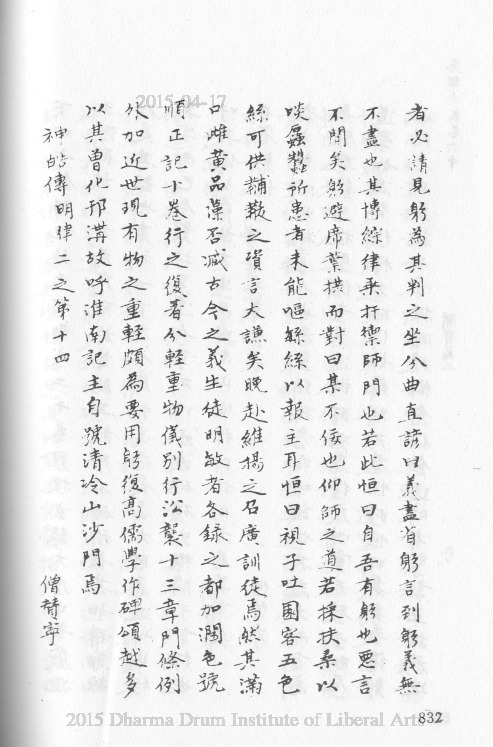 者必請見躬為其判之坐分曲直諺曰義盡省躬言到躬義無
不盡也其博綜律乘扞禦師門也若此恒曰自吾有躬也惡言
不聞矣躬避席葉拱而對曰某不佞也仰師之道若採扶桑以
啖蟲蠶所患者未能嘔絲以報主耳恒曰視子吐園客五色
絲可供黼黻之資言大謙矣晚赴維揚之召廣訓徒焉然其滿
口雌黃品藻否臧古今之義生徒明敏者各錄之都加潤色號
順正記十卷行之復著分輕重物儀別行沿襲十三章門條例
外加近世現有物之重輕頗為要用躬復高儒學作碑頌越多
以其曾化邗溝故呼淮南記主自號清冷山沙門焉
神皓傳明律二之第十四
僧贊寧
2015-04-17
2015 Dharma Drum Institute of Liberal Arts
832